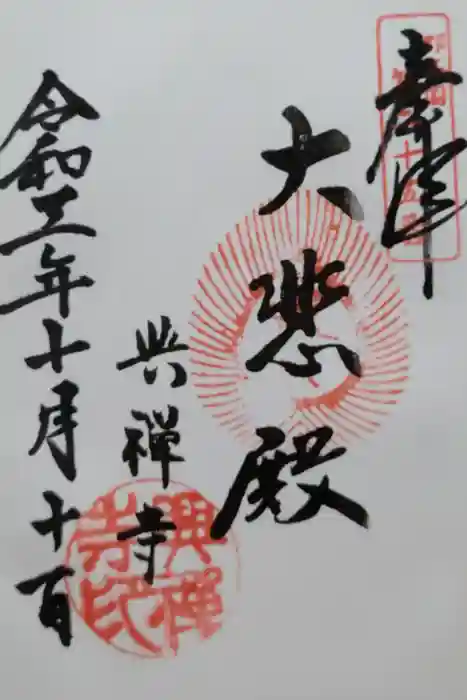 奉拝
大悲殿
興禅寺
令和三年十月十一日
興禅寺印